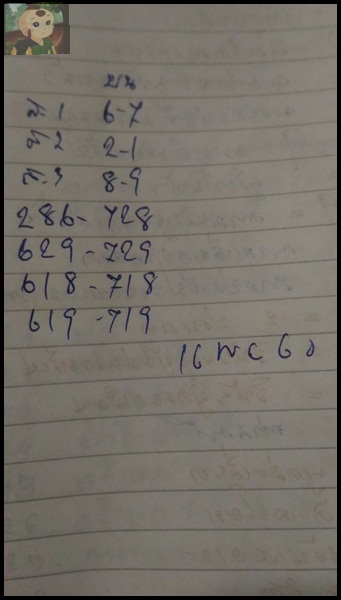 บน
ก.1 6-7
ก.2 2-1
ก.3 8-9
286-728
629-729
618-718
619-719
16 พ.ย 60